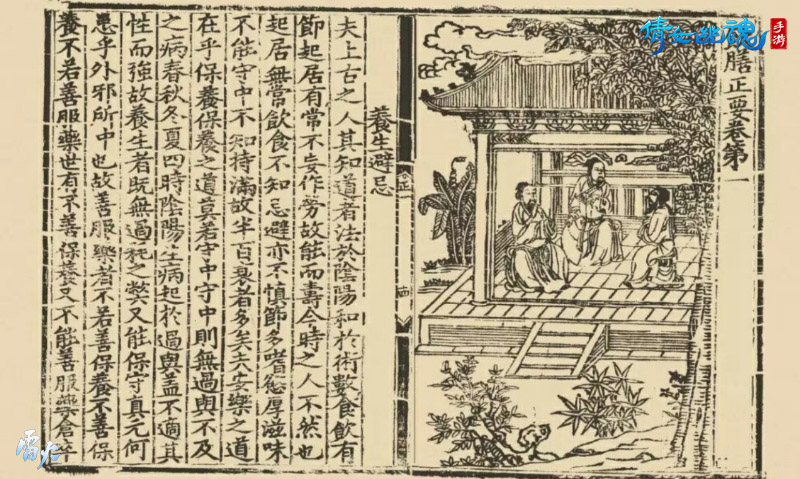 倩女幽魂
手游
膳正要卷第一
養生避忌
夫上古之人其知道者法於陰陽和於術數食飲有
節起居有常不妄作勞故能而壽今時之人不然也
起居無常飲食不知忌避亦不慎節多嗜慾厚滋味
不能守中不知持滿故半百衰者多矣夫安樂之道
在乎保養保養之道莫若守中守中則無過與不及
之病春秋冬夏四時陰陽生病起於過與蓋不適其
性而強故養生者既無過耗之弊又能保守真元何
患乎外邪所中也故善服藥者不若善保養不善保
養不若善服藥世有不善保養又不能善服藥倉卒